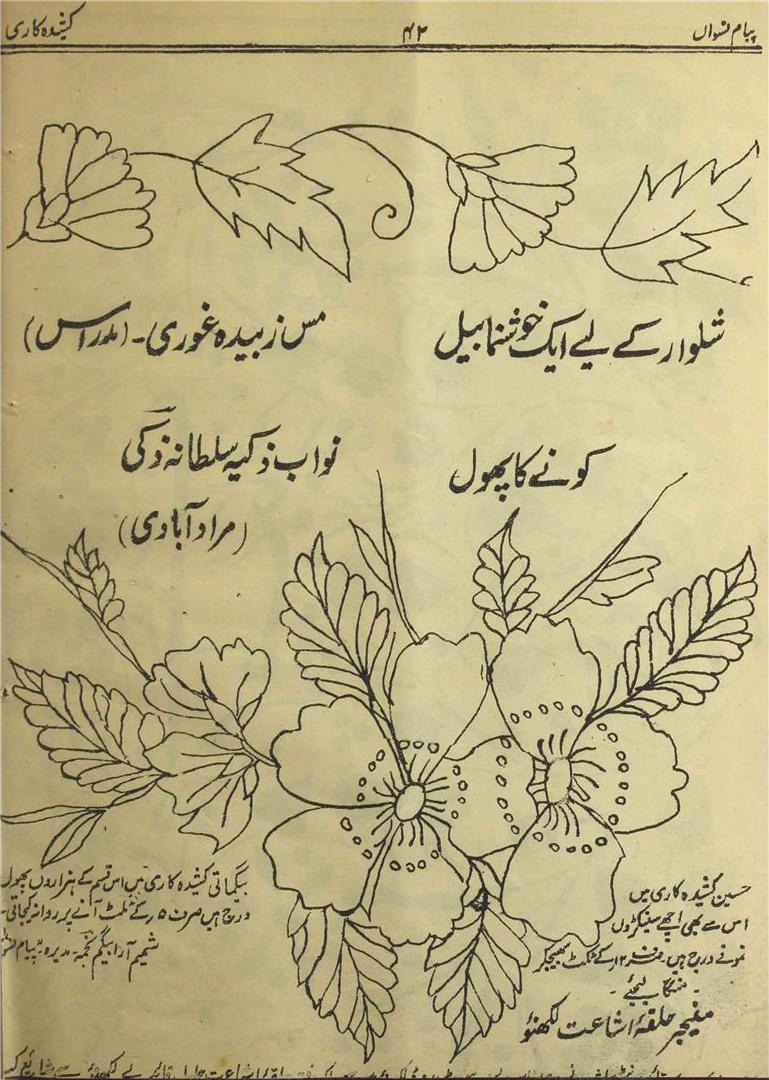 پیام نسواں ۴۲ کشیدہ کاری
شلوار کے لیے ایک خوشنما بیل
مس زبیدہ غوری۔ (مدراس)
کونے کا پھول
نواب ذکیہ سلطانہ ذکی
(مراد آبادی)
حسین کشیدہ کاری میں
اس سے بھی اچھے سینکڑوں
نمونے درج ہیں۔ صرف ۱۲ر کے ٹکٹ بھیجکر
۔ منگا لیجئے ۔
منیجر حلقۂ اشاعت لکھنؤ
بیگماتی کشیدہ کاری میں اس قسم کے ہزاروں پھول
درج ہیں صرف ۵ر کے ٹکٹ آنے پر روانہ کیجاتی۔
شمیم آرا بیگم نجمہ مدیرہ پیام